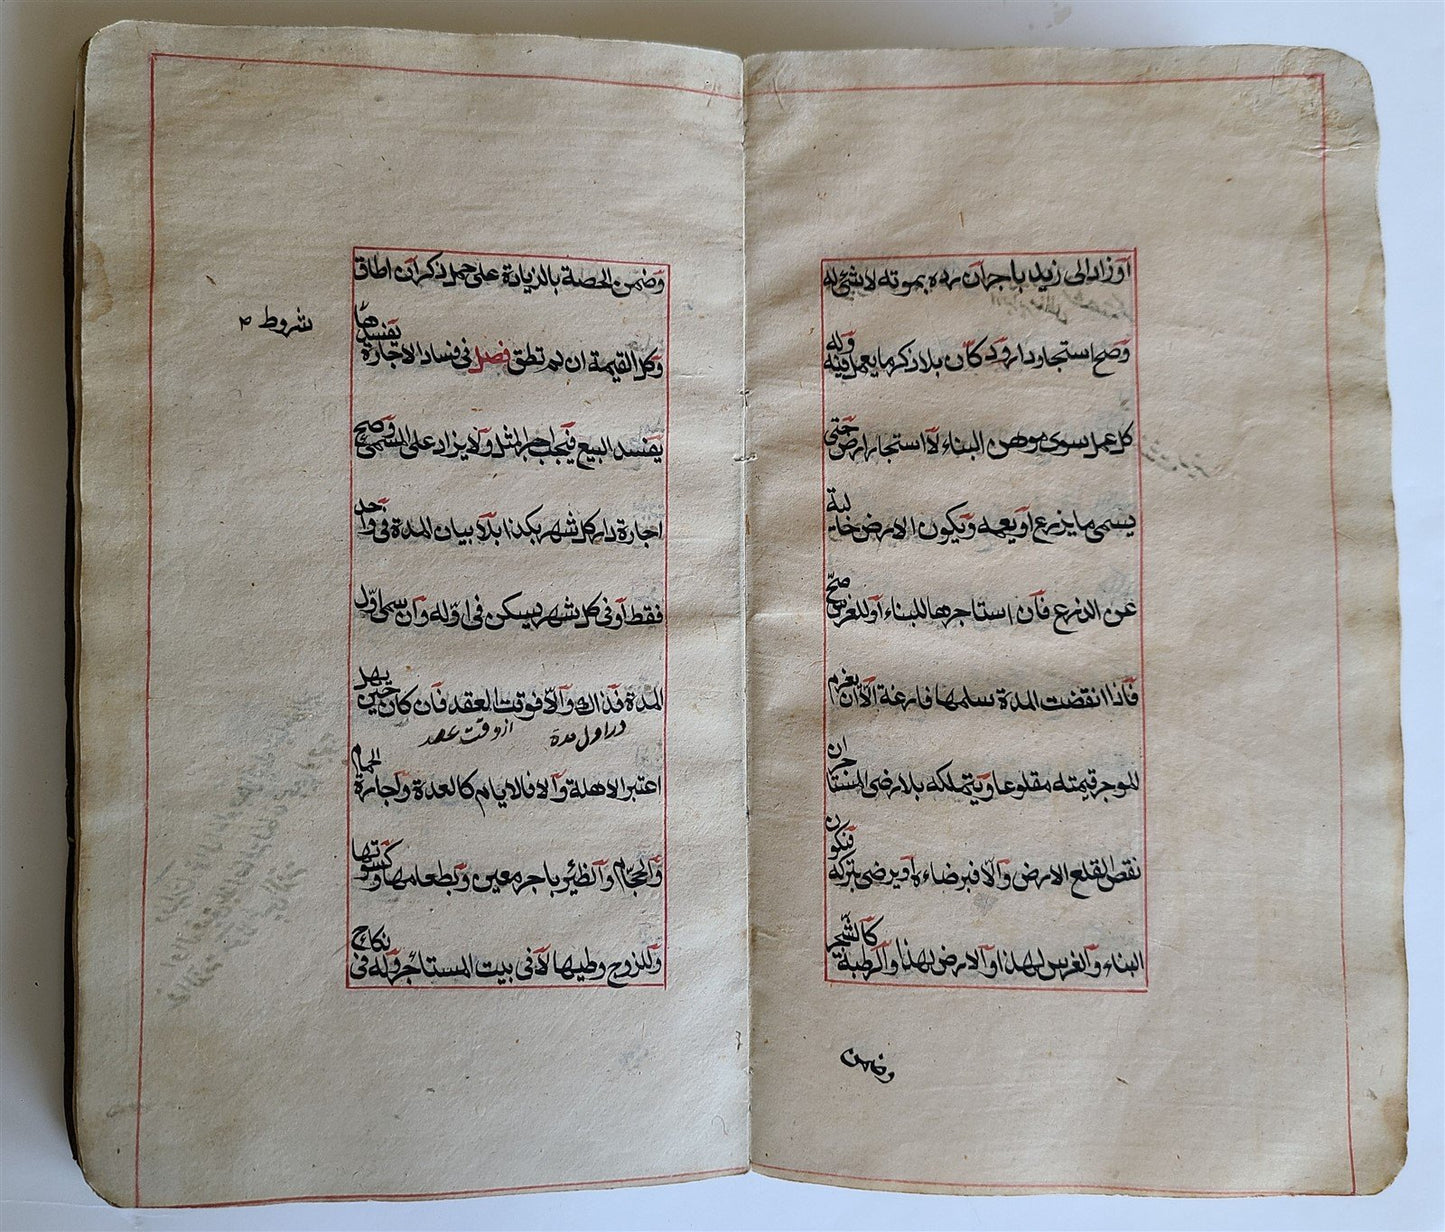 او زاد الى زيد باجر ان رده بموته لا شئ له
وصح استجار دار ودكان بلا ذكر ما يعمل فيه وله
كل عمل سوى موهن البناء لا استجار ارض حتى
يسمى ما يزرع او يعمه ويكون الارض خالية
عن الزرع فان استاجرها للبناء او للغرس صح
فاذا انقضت المدة سلمها فارغة الا ان يغرم
الموجر قيمته مقلوعا ويتملكه بلا رضى المستاجر ان
نقص القلع الارض والا فبرضاءه او يرضى بتركه فيكون
البناء والغرس لهذا والارض لهذا والرطبة كالشجر
وضمن
وضمن الحصة بالزيادة على حمل ذكر ان اطاق
وكل القيمة ان لم تطق فصل فى فساد الاجارة يفسدها
شروط
يفسد البيع فيجب اجر المثل ولا يزاد على المسمى وصح
اجارة دار كل شهر بكذا بلا بيان المدة فى واحد
فقط او فى كل شهر يسكن فى اوله وان سمى اول
المدة فذاك والا فوقت العقد فان كان حين يهل
در اول مدة از وقت عقد
اعتبر الاهلة والا فالايام كالعدة واجارة الحمام
والحجام والظئر باجر معين وبطعامها وكسوتها
وللزوج وطيها لا فى بيت المستاجر وله فى نكاح